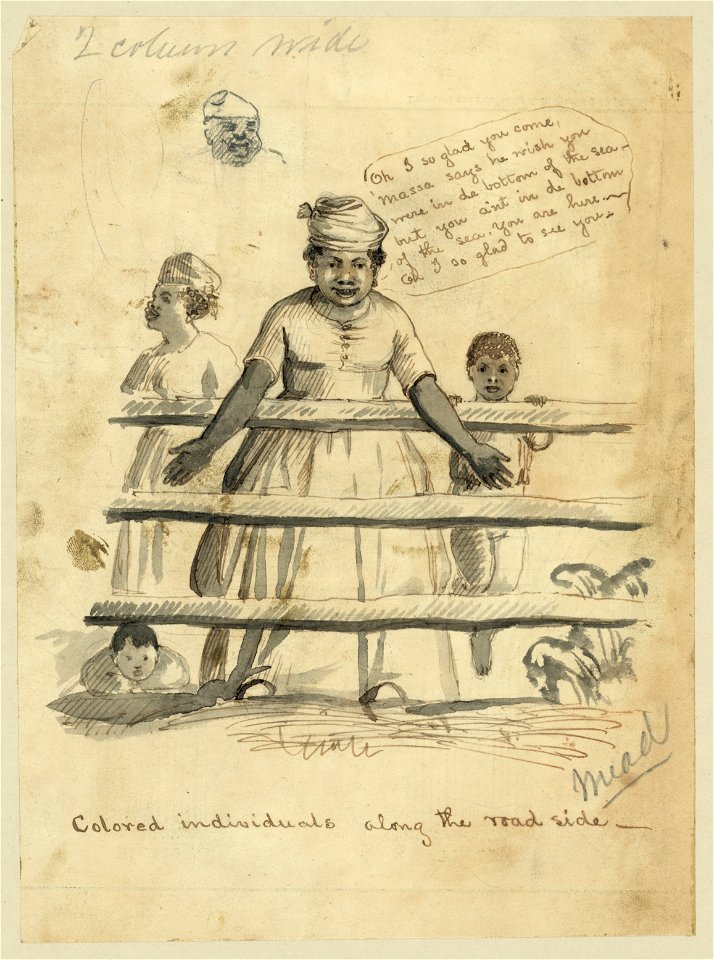 2 column wide
Oh I so glad you come,
Massa says he wish you
were in de bottom of the sea—
but you aint in de bottom
of the sea. You are here—
Oh I so glad to see you—
Mead
Colored individuals along the road side—